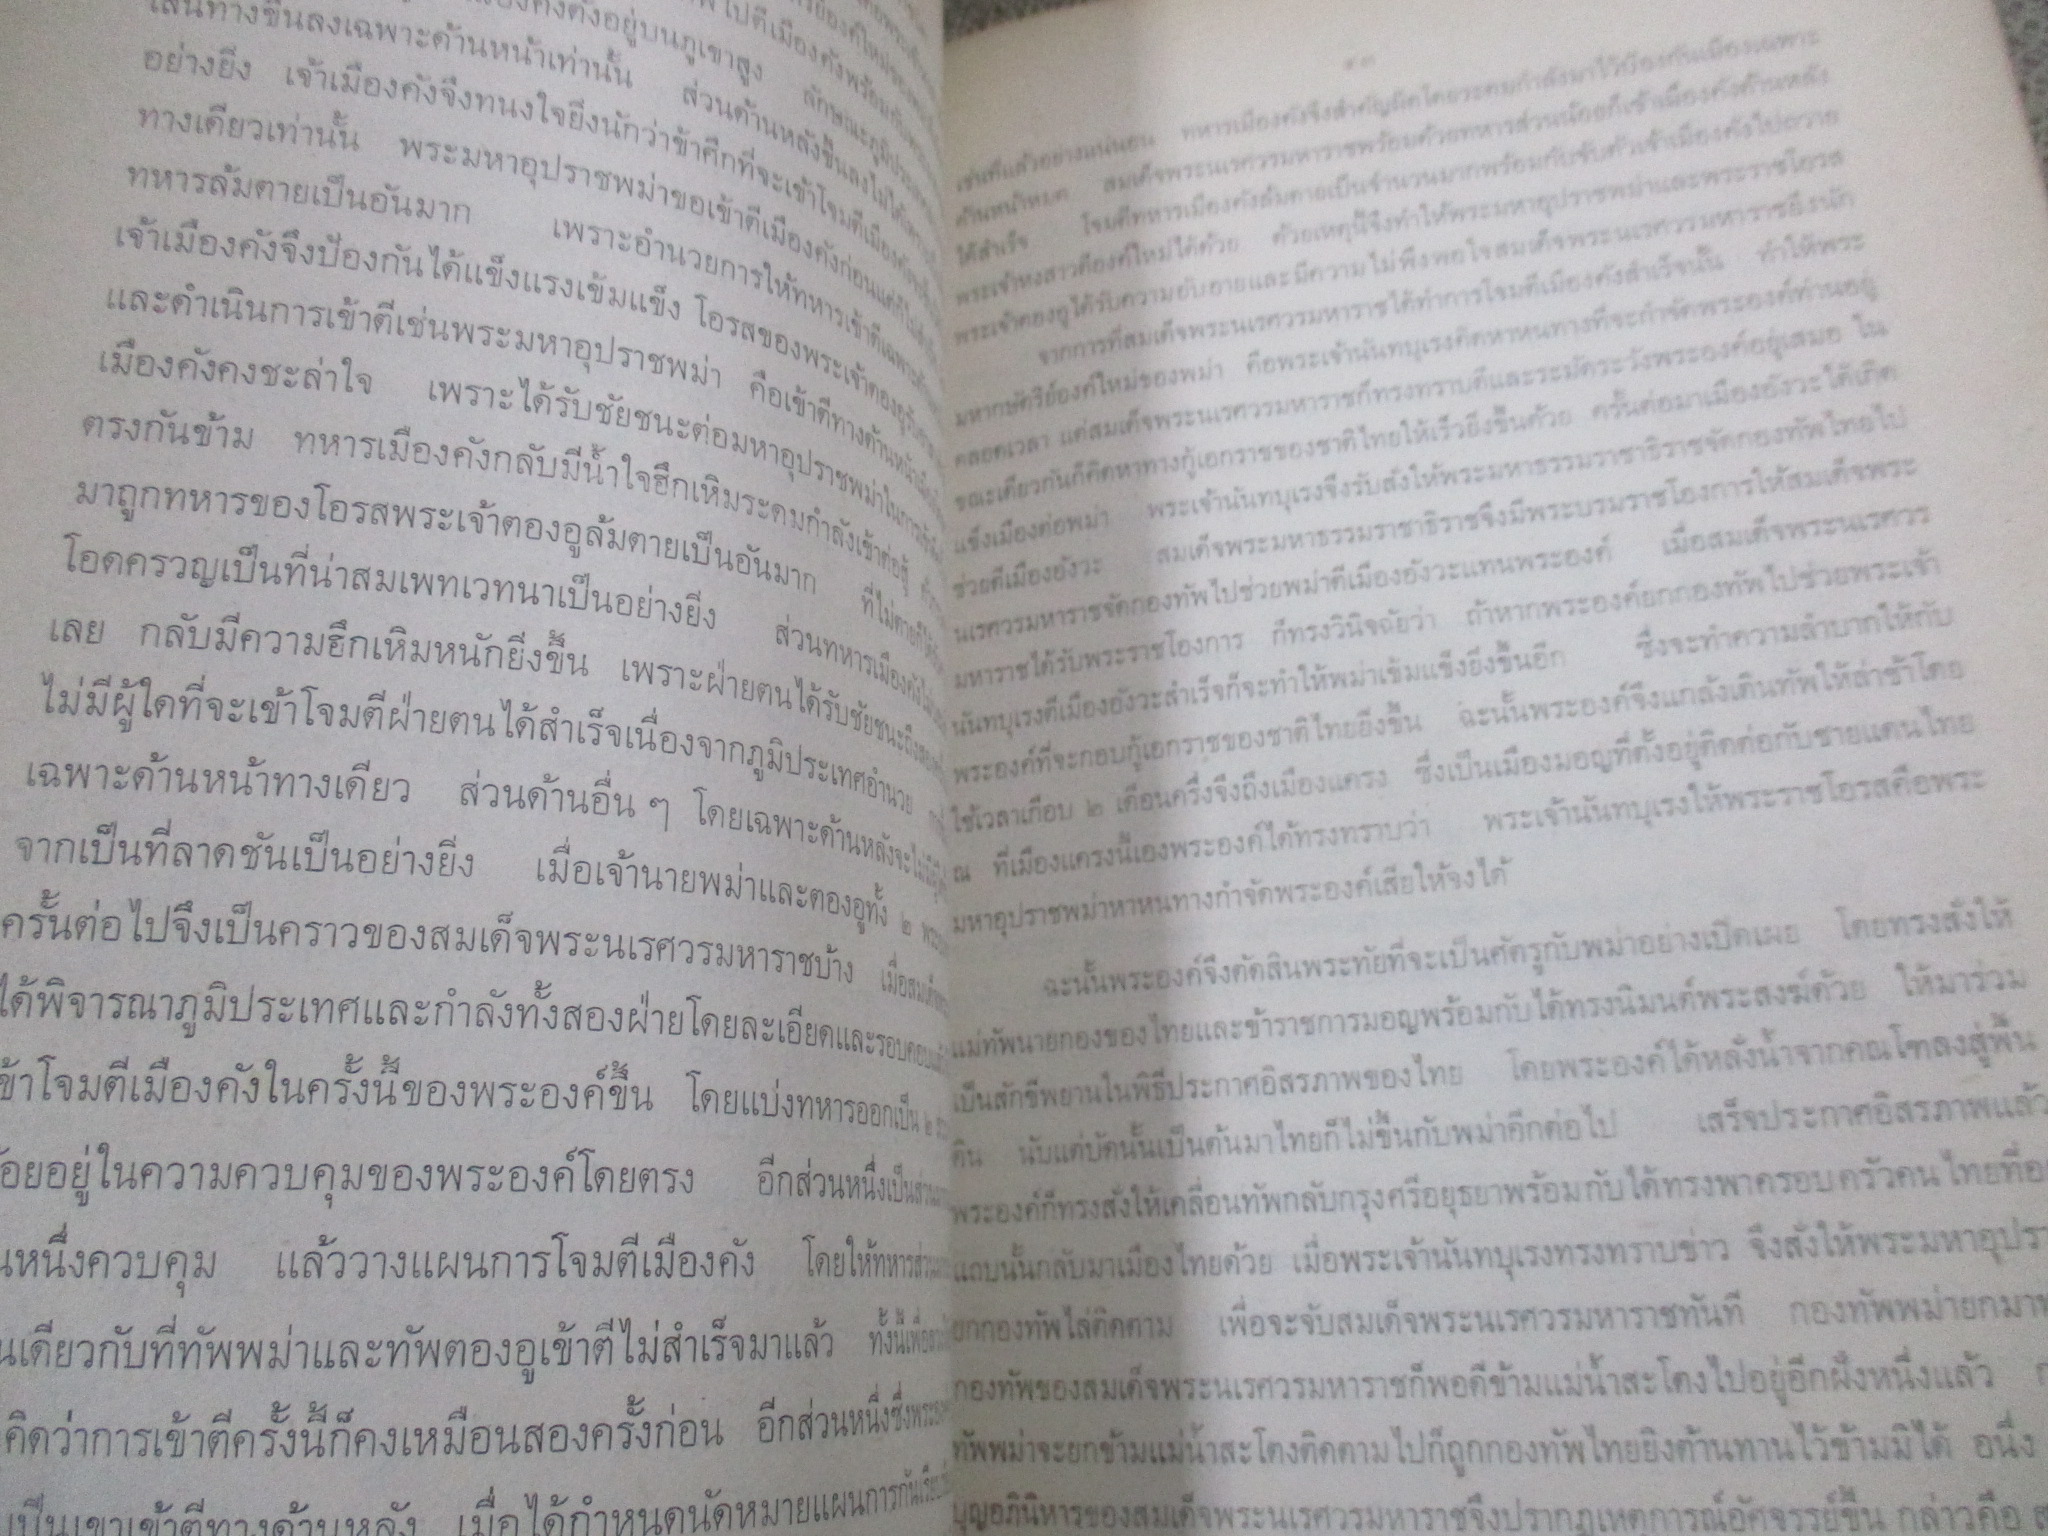 เส้นทางขึ้นลงเฉพาะด้านหน้าเท่านั้น ส่วนด้านหลังขึ้นลงไม่ได้
อย่างยิ่ง เจ้าเมืองคังจึงทนงใจยิ่งนักว่าข้าศึกที่จะเข้าโจมตีเมืองคัง
ทางเดียวเท่านั้น พระมหาอุปราชพม่าขอเข้าตีเมืองคังก่อนแต่ก็ไม่สำเร็จ
ทหารล้มตายเป็นอันมาก เพราะอำนวยการให้ทหารเข้าตีเฉพาะ
เจ้าเมืองคังจึงป้องกันได้แข็งแรงเข้มแข็ง โอรสของพระเจ้าตองอู
และดำเนินการเข้าตีเช่นพระมหาอุปราชพม่า คือเข้าตีทางด้านหน้า
เมืองคังคงชะล่าใจ เพราะได้รับชัยชนะต่อมหาอุปราชพม่าในการ
ตรงกันข้าม ทหารเมืองคังกลับมีน้ำใจฮึกเหิมระดมกำลังเข้าต่อสู้
มาถูกทหารของโอรสพระเจ้าตองอูล้มตายเป็นอันมาก ที่ไม่ตายก็
โอดครวญเป็นที่น่าสมเพทเวทนาเป็นอย่างยิ่ง ส่วนทหารเมืองคังไม่
เลย กลับมีความฮึกเหิมหนักยิ่งขึ้น เพราะฝ่ายตนได้รับชัยชนะถึงสอง
ไม่มีผู้ใดที่จะเข้าโจมตีฝ่ายตนได้สำเร็จเนื่องจากภูมิประเทศอำนวย
เฉพาะด้านหน้าทางเดียว ส่วนด้านอื่น ๆ โดยเฉพาะด้านหลังจะไม่มี
จากเป็นที่ลาดชันเป็นอย่างยิ่ง เมื่อเจ้านายพม่าและตองอูทั้ง ๒
ครั้นต่อไปจึงเป็นคราวของสมเด็จพระนเรศวรมหาราชบ้าง
ได้พิจารณาภูมิประเทศและกำลังทั้งสองฝ่ายโดยละเอียดและรอบคอบ
ข้าโจมตีเมืองคังในครั้งนี้ของพระองค์ขึ้น โดยแบ่งทหารออกเป็น ๒
อยอยู่ในความควบคุมของพระองค์โดยตรง อีกส่วนหนึ่งเป็น
นหนึ่งควบคุม แล้ววางแผนการโจมตีเมืองคัง โดยให้ทหาร
นเดียวกับที่ทัพพม่าและทัพตองอูเข้าตีไม่สำเร็จมาแล้ว ทั้งนี้เพื่อ
คิดว่าการเข้าตีครั้งนี้ก็คงเหมือนสองครั้งก่อน อีกส่วนหนึ่งซึ่ง
เป็นเขาเข้าตีทางด้านหลัง เมื่อได้กำหนดนัดหมายแผนการกัน
๑๓
เช่นที่แล้วอย่างแน่นอน ทหารเมืองคังจึงสำคัญผิดโดยระดมกำลังมาไว้ป้องกันเมืองเฉพาะ
ด้านหน้าหมด สมเด็จพระนเรศวรมหาราชพร้อมด้วยทหารส่วนน้อยก็เข้าเมืองคังด้านหลัง
ได้สำเร็จ โจมตีทหารเมืองคังล้มตายเป็นจำนวนมากพร้อมกับจับตัวเจ้าเมืองคังไปถวาย
พระเจ้าหงสาวดีองค์ใหม่ได้ด้วย ด้วยเหตุนี้จึงทำให้พระมหาอุปราชพม่าและพระราชโอรส
พระเจ้าตองอูได้รับความอับอายและมีความไม่พึงพอใจสมเด็จพระนเรศวรมหาราชยิ่งนัก
จากการที่สมเด็จพระนเรศวรมหาราชได้ทำการโจมตีเมืองคังสำเร็จนั้น ทำให้พระ
มหากษัตริย์องค์ใหม่ของพม่า คือพระเจ้านันทบุเรงคิดหาหนทางที่จะกำจัดพระองค์ท่านอยู่
ตลอดเวลา แต่สมเด็จพระนเรศวรมหาราชก็ทรงทราบดีและระมัดระวังพระองค์อยู่เสมอ ใน
ขณะเดียวกันก็คิดหาทางกู้เอกราชของชาติไทยให้เร็วยิ่งขึ้นด้วย ครั้นต่อมาเมืองอังวะได้เกิด
แข็งเมืองต่อพม่า พระเจ้านันทบุเรงจึงรับสั่งให้พระมหาธรรมราชาธิราชจัดกองทัพไทยไป
ช่วยตีเมืองอังวะ สมเด็จพระมหาธรรมราชาธิราชจึงมีพระบรมราชโองการให้สมเด็จพระ
นเรศวรมหาราชจัดกองทัพไปช่วยพม่าตีเมืองอังวะแทนพระองค์ เมื่อสมเด็จพระนเรศวร
มหาราชได้รับพระราชโองการ ก็ทรงวินิจฉัยว่า ถ้าหากพระองค์ยกกองทัพไปช่วยพระเจ้า
นันทบุเรงตีเมืองอังวะสำเร็จก็จะทำให้พม่าเข้มแข็งยิ่งขึ้นอีก ซึ่งจะทำความลำบากให้กับ
พระองค์ที่จะกอบกู้เอกราชของชาติไทยยิ่งขึ้น ฉะนั้นพระองค์จึงแกล้งเดินทัพให้ล่าช้าโดย
ใช้เวลาเกือบ ๒ เดือนครึ่งจึงถึงเมืองแครง ซึ่งเป็นเมืองมอญที่ตั้งอยู่ติดต่อกับชายแดนไทย
ณ ที่เมืองแครงนี้เองพระองค์ได้ทรงทราบว่า พระเจ้านันทบุเรงให้พระราชโอรสคือพระ
มหาอุปราชพม่าหาหนทางกำจัดพระองค์เสียให้จงได้
ฉะนั้นพระองค์จึงตัดสินพระทัยที่จะเป็นศัตรูกับพม่าอย่างเปิดเผย โดยทรงสั่งให้
แม่ทัพนายกองของไทยและข้าราชการมอญพร้อมกับได้ทรงนิมนต์พระสงฆ์ด้วย ให้มาร่วม
เป็นสักขีพยานในพิธีประกาศอิสรภาพของไทย โดยพระองค์ได้หลั่งน้ำจากคณโฑลงสู่พื้น
ดิน นับแต่บัดนั้นเป็นต้นมาไทยก็ไม่ขึ้นกับพม่าอีกต่อไป เสร็จประกาศอิสรภาพแล้ว
พระองค์ก็ทรงสั่งให้เคลื่อนทัพกลับกรุงศรีอยุธยาพร้อมกับได้ทรงพาครอบครัวคนไทยที่อ
แถบนั้นกลับมาเมืองไทยด้วย เมื่อพระเจ้านันทบุเรงทรงทราบข่าว จึงสั่งให้พระมหาอุปรา
ยกกองทัพไล่ติดตาม เพื่อจะจับสมเด็จพระนเรศวรมหาราชทันที กองทัพพม่ายกมา
กองทัพของสมเด็จพระนเรศวรมหาราชก็พอดีข้ามแม่น้ำสะโตงไปอยู่อีกฝั่งหนึ่งแล้ว
ทัพพม่าจะยกข้ามแม่น้ำสะโตงติดตามไปก็ถูกกองทัพไทยยิงต้านทานไว้ข้ามมิได้ อนึ่ง
บุญอภินิหารของสมเด็จพระนเรศวรมหาราชจึงปรากฏเหตุการณ์อัศจรรย์ขึ้น กล่าวคือ